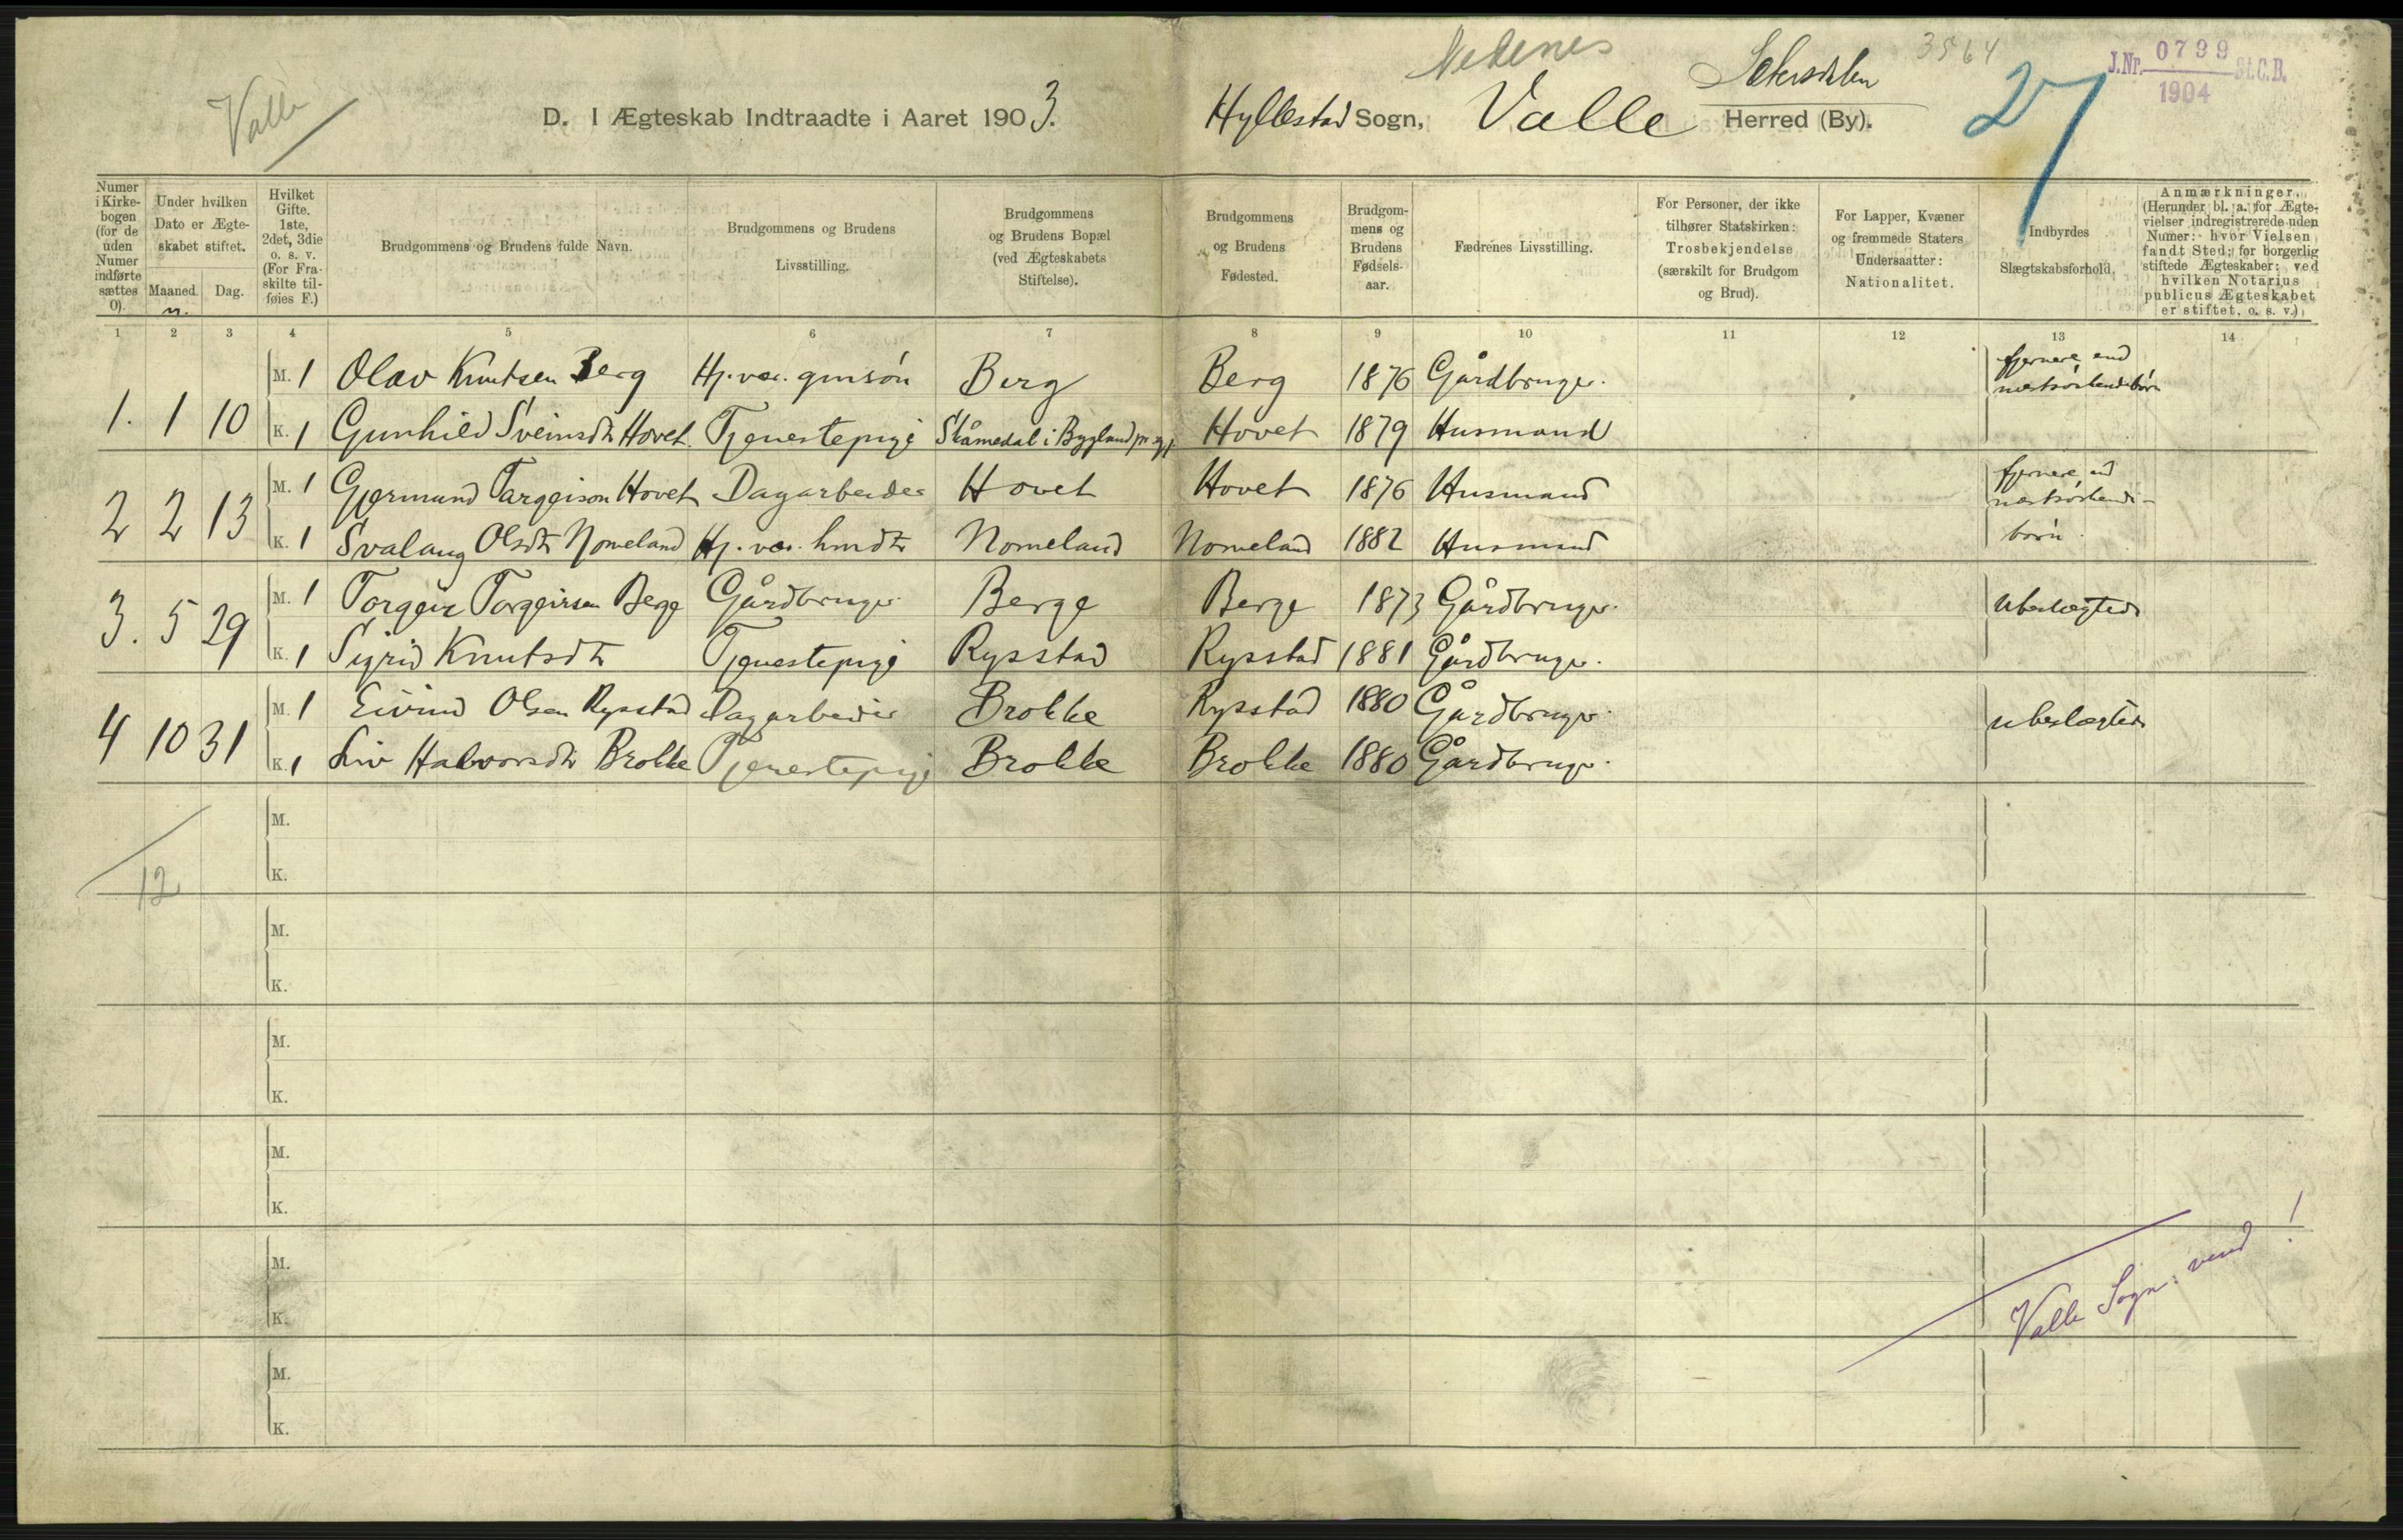 Nedenes
Sætersdalen
3564
J.Nr. 0799 St.C.B.
1904
27
Valle
D. I Ægteskab Indtraadte i Aaret 1903.
Hyllestad Sogn, Valle Herred (By).
Numer i Kirkebogen (for de uden Numer indførte sættes 0).
Under hvilken Dato er Ægteskabet stiftet.
Maaned. Dag.
Hvilket Gifte. 1ste, 2det, 3die o. s. v. (For Fraskilte tilføies F.)
Brudgommens og Brudens fulde Navn.
Brudgommens og Brudens Livsstilling.
Brudgommens og Brudens Bopæl (ved Ægteskabets Stiftelse).
Brudgommens og Brudens Fødested.
Brudgommens og Brudens Fødselsaar.
Fædrenes Livsstilling.
For Personer, der ikke tilhører Statskirken: Trosbekjendelse (særskilt for Brudgom og Brud).
For Lapper, Kvæner og fremmede Staters Undersaatter: Nationalitet.
Indbyrdes Slægtskabsforhold.
Anmærkninger. (Herunder bl. a. for Ægtevielser indregistrerede uden Numer: hvor Vielsen fandt Sted; for borgerlig stiftede Ægteskaber: ved hvilken Notarius publicus Ægteskabet er stiftet, o. s. v.)
1 2 3 4 5 6 7 8 9 10 11 12 13 14
1. 1 10 M. 1 Olav Knutsen Berg Hj. vær. gmsøn Berg Berg 1876 Gårdbruger. fjernere end næstsøskendebørn
K. 1 Gunhild Sveinsdtr Hovet. Tjenestepige Skåmedal i Bygland prgj. Hovet 1879 Husmand
2 2 13 M. 1 Gjermund Targeison Hovet Dagarbeider Hovet Hovet 1876 Husmand fjernere end næstsøskende-børn
K. 1 Svalaug Olsdtr Nomeland Hj. vær. hmdtr Nomeland Nomeland 1882 Husmand
3. 5 29 M. 1 Torgeir Torgeirsen Berge Gårdbruger Berge Berge 1873 Gårdbruger. Ubeslægtede
K. 1 Sigrid Knutsdtr Tjenestepige Rysstad Rysstad 1881 Gårdbruger.
4 10 31 M. 1 Eivind Olsen Rysstad Dagarbeider Brokke Rysstad 1880 Gårdbruger. ubeslægtede
K. 1 Liv Halvorsdtr Brokke Tjenestepige Brokke Brokke 1880 Gårdbruger.
M.
K.
12
M.
K.
M.
K.
M.
K.
M.
K.
M.
K.
Valle Sogn: vend!